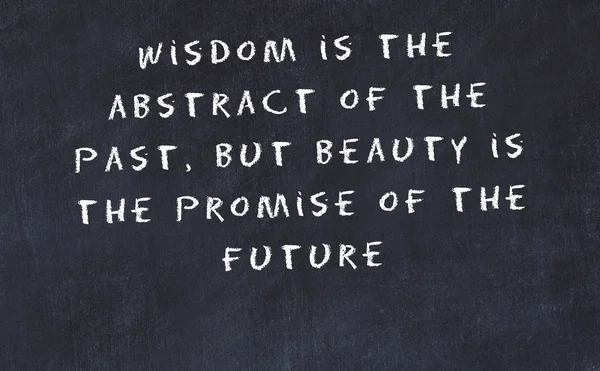 WISDOM IS THE
ABSTRACT OF THE
PAST, BUT BEAUTY IS
THE PROMISE OF THE
FUTURE